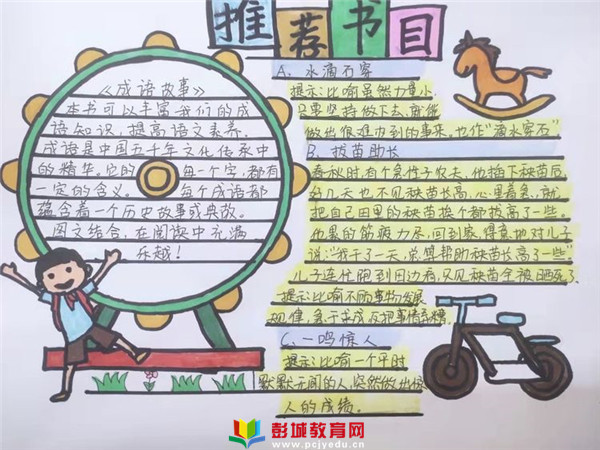 推荐书目
《成语故事》
本书可以丰富我们的成
语知识，提高语文素养。
成语是中国五千年文化传承中
的精华。它的每一个字，都有
一定的含义。每个成语都
蕴含着一个历史故事或典故。
图文结合，在阅读中充满
乐趣！
A、水滴石穿
提示：比喻虽然力量小，
只要坚持做下去，就能
做出很难办到的事来。也作“滴水穿石”
B、拔苗助长
春秋时，有个急性子农夫，他插下秧苗后
好几天也不见秧苗长高，心里着急，就
把自己田里的秧苗挨个都拔高了一些。
他累的筋疲力尽，回到家得意地对儿子
说：“我干了一天，总算帮助秧苗长高了一些”
儿子连忙跑到田边看，只见秧苗全被晒死了。
提示：比喻不顾事物发展
规律，急于求成反把事情弄糟。
C、一鸣惊人
提示：比喻一个平时
默默无闻的人，突然做出惊
人的成绩。
彭城教育网
www.pcjyedu.cn